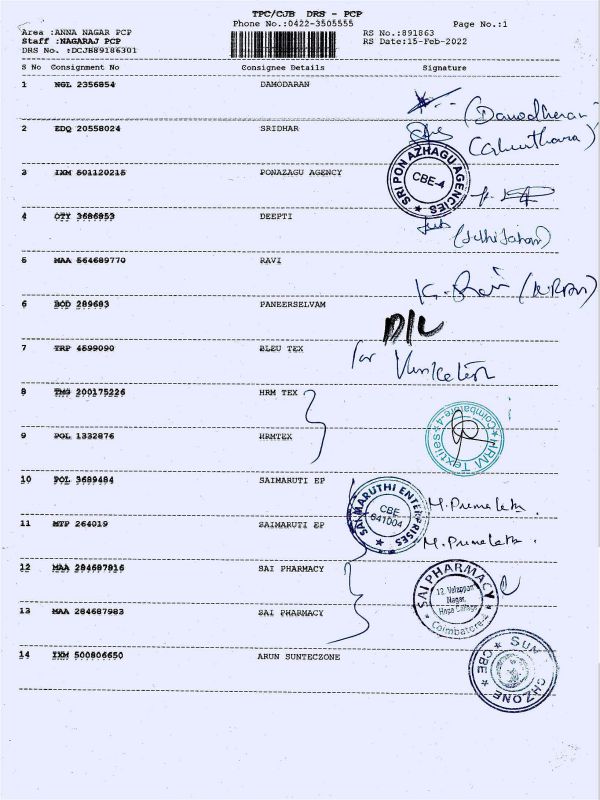 TPC/CJB DRS - PCP
Phone No.:0422-3505555 Page No.:1
Area :ANNA NAGAR PCP RS No.:891863
Staff :NAGARAJ PCP RS Date:15-Feb-2022
DRS No. :DCJB89186301
S No Consignment No Consignee Details Signature
1 NGL 2356854 DAMODARAN
(Damodharan)
2 EDQ 20558024 SRIDHAR
3 IXM 501120215 PONAZAGU AGENCY
SRI PON AZHAGU AGENCIES
CBE-4
4 OTY 3686853 DEEPTI
5 MAA 564689770 RAVI
6 BOD 289683 PANEERSELVAM
D/L
7 TRP 4599090 BLEU TEX
for
8 TMG 200175226 HRM TEX
9 POL 1332876 HRMTEX
HRM Textiles
Coimbatore-4
10 POL 3689484 SAIMARUTI EP
M. Premalatha
SAI MARUTHI ENTERPRISES
CBE
641004
11 MTP 264019 SAIMARUTI EP
M. Premalatha.
12 MAA 284687816 SAI PHARMACY
SAI PHARMACY
Nagar,
Hope College
Coimbatore-4
13 MAA 284687983 SAI PHARMACY
14 IXM 500806650 ARUN SUNTECZONE
SUN
CHZONE
CBE